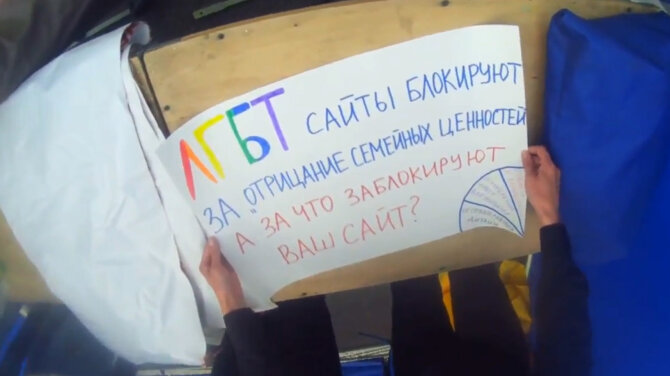 ЛГБТ САЙТЫ БЛОКИРУЮТ
ЗА "ОТРИЦАНИЕ СЕМЕЙНЫХ ЦЕННОСТЕЙ
А ЗА ЧТО ЗАБЛОКИРУЮТ
ВАШ САЙТ?